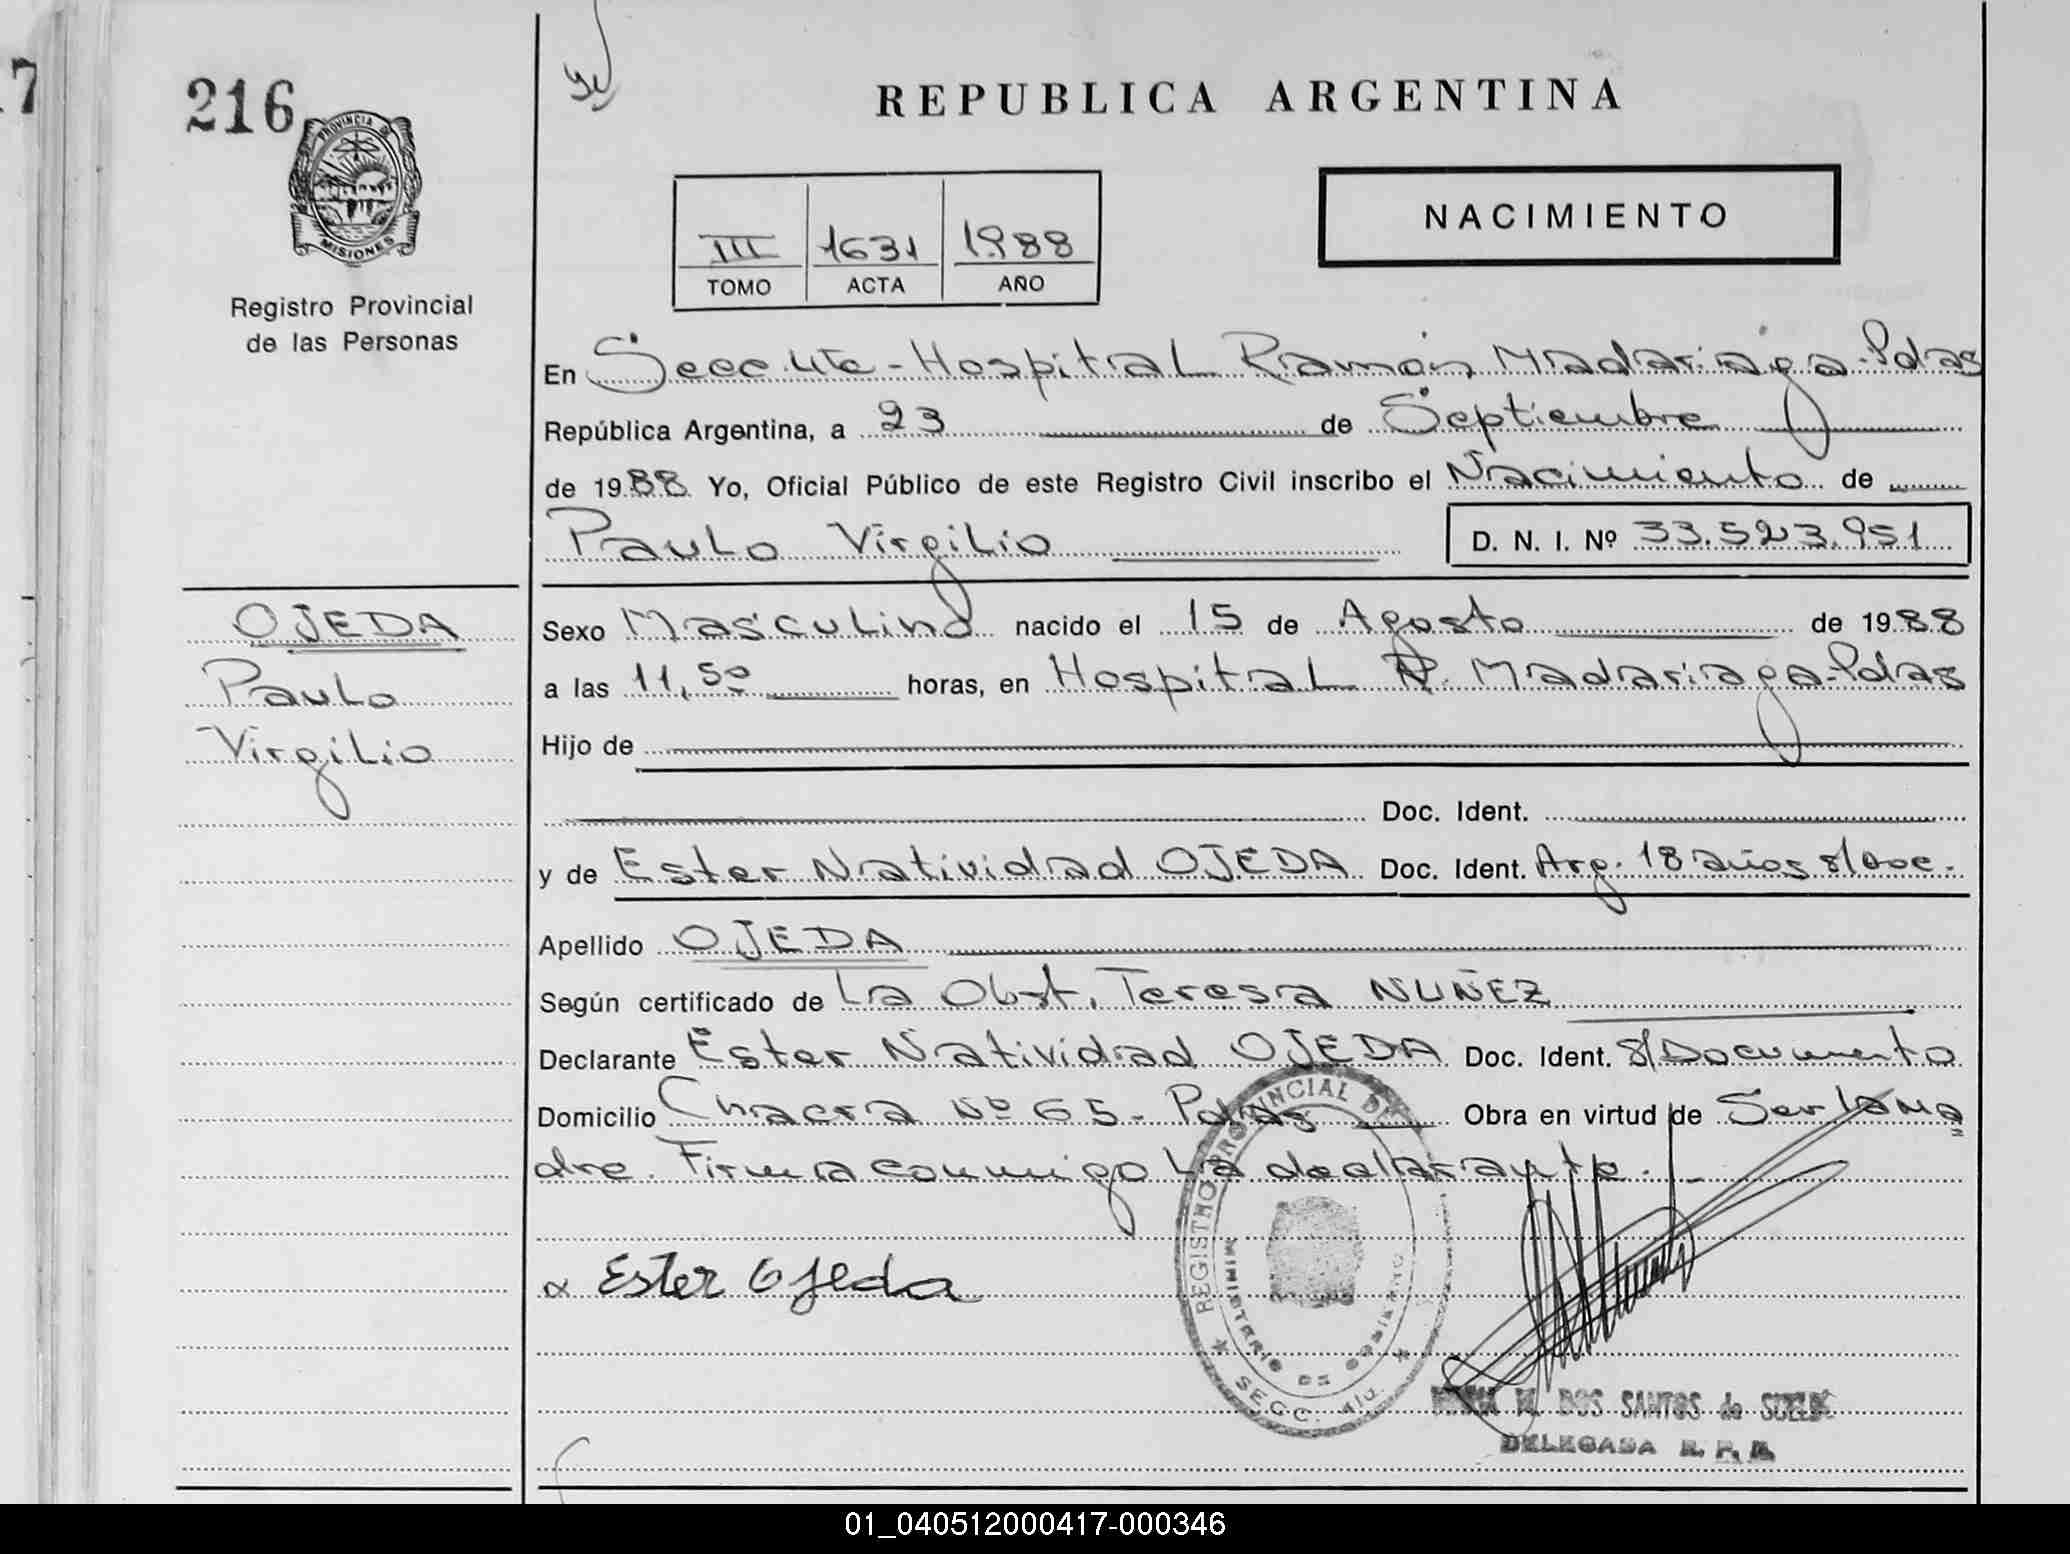 17
216
PROVINCIA DE
MISIONES
Registro Provincial
de las Personas
REPUBLICA ARGENTINA
NACIMIENTO
III 1631 1988
TOMO ACTA AÑO
En Secc. 4ta - Hospital Ramón Madariaga - Pdas
República Argentina, a 23 de Septiembre
de 1988 Yo, Oficial Público de este Registro Civil inscribo el Nacimiento de
Paulo Virgilio D. N. I. Nº 33.523.951
OJEDA
Paulo
Virgilio
Sexo Masculino nacido el 15 de Agosto de 1988
a las 11,50 horas, en Hospital R. Madariaga - Pdas
Hijo de
Doc. Ident.
y de Ester Natividad OJEDA Doc. Ident. Arg. 18 años s/Doc.
Apellido OJEDA
Según certificado de La Obst. Teresa NUÑEZ
Declarante Ester Natividad OJEDA Doc. Ident. s/Documento
Domicilio Chacra Nº 65 - Pdas Obra en virtud de Ser la ma
dre. Firma conmigo la declarante.
x Ester Ojeda
REGISTRO PROVINCIAL DE
MINISTERIO DE GOBIERNO
SECC. 4ta.
M. DOS SANTOS de
DELEGADA R. P. P.
01_040512000417-000346